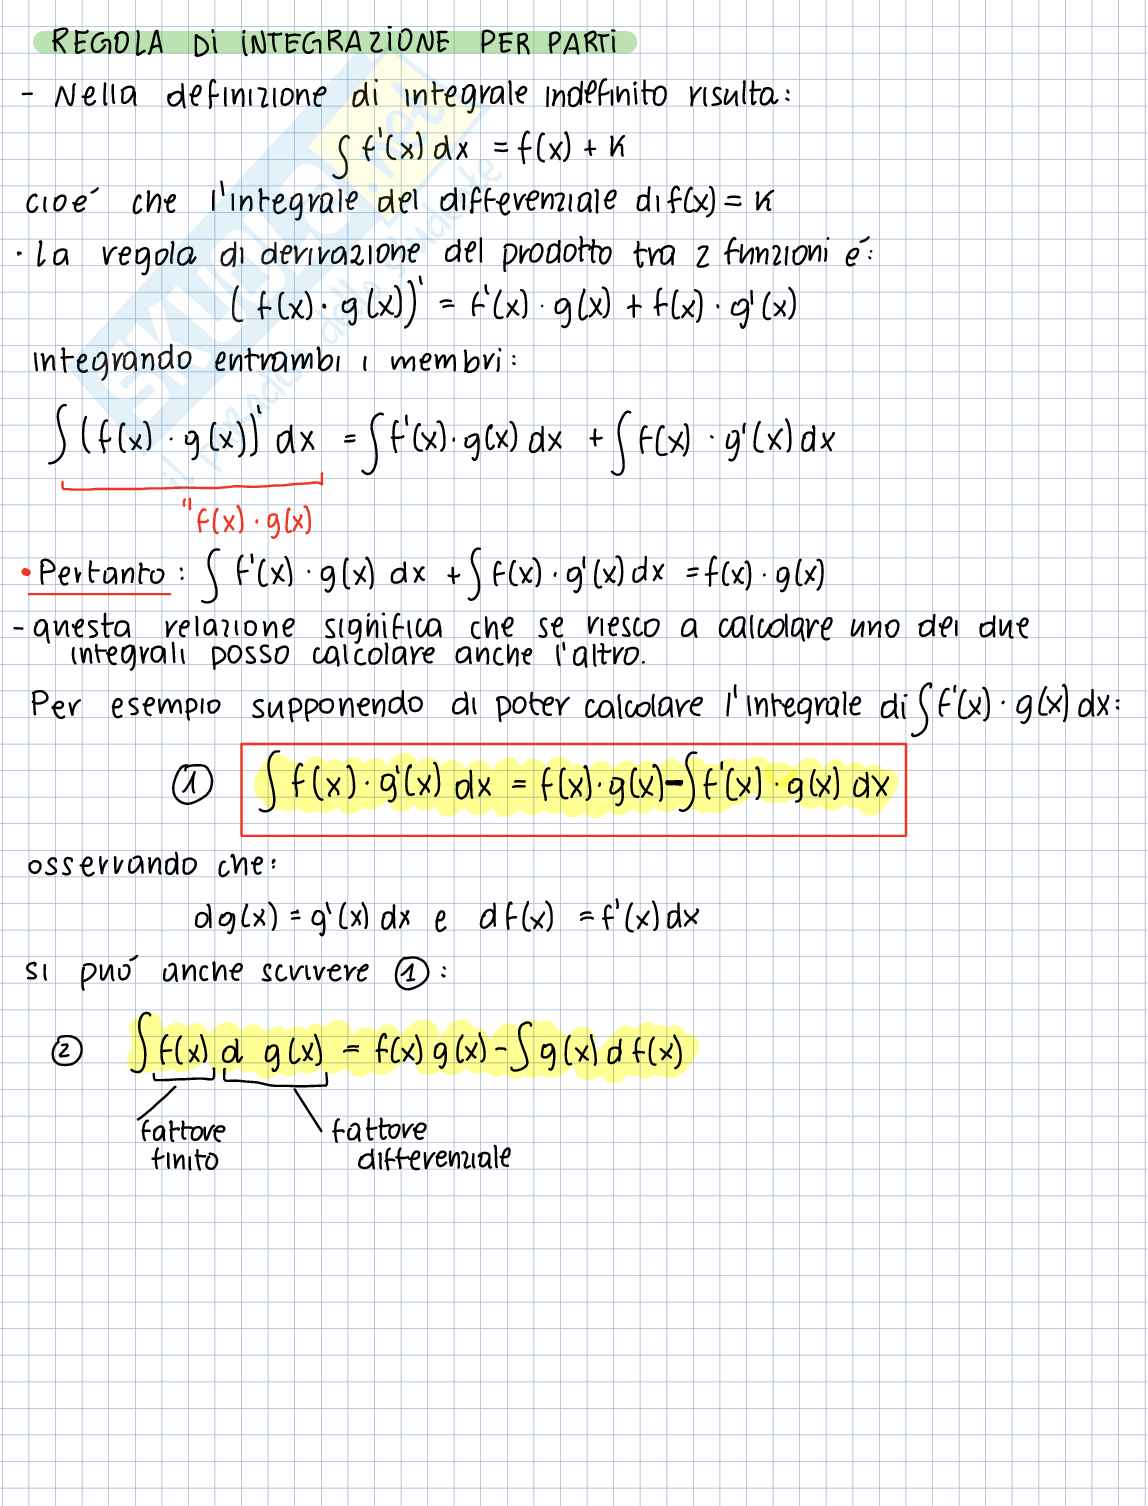 REGOLA Di iNTEGRAZiONE PER PARTi
- Nella definizione di integrale indefinito risulta:
∫ f'(x) dx = f(x) + K
cioé che l'integrale del differenziale di f(x) = K
· La regola di derivazione del prodotto tra 2 funzioni é:
(f(x) · g(x))' = f'(x) · g(x) + f(x) · g'(x)
integrando entrambi i membri:
∫(f(x) · g(x))' dx = ∫f'(x) · g(x) dx + ∫f(x) · g'(x) dx
"f(x) · g(x)
• Pertanto: ∫ f'(x) · g(x) dx + ∫ f(x) · g'(x) dx = f(x) · g(x)
- questa relazione significa che se riesco a calcolare uno dei due
integrali posso calcolare anche l'altro.
Per esempio supponendo di poter calcolare l'integrale di ∫f'(x) · g(x) dx:
① ∫ f(x) · g'(x) dx = f(x) · g(x) - ∫f'(x) · g(x) dx
osservando che:
dg(x) = g'(x) dx e df(x) = f'(x) dx
si puó anche scrivere ①:
② ∫ f(x) d g(x) = f(x) g(x) - ∫ g(x) d f(x)
fattore finito
fattore differenziale
SKUOLA.net
il mondo dello studente